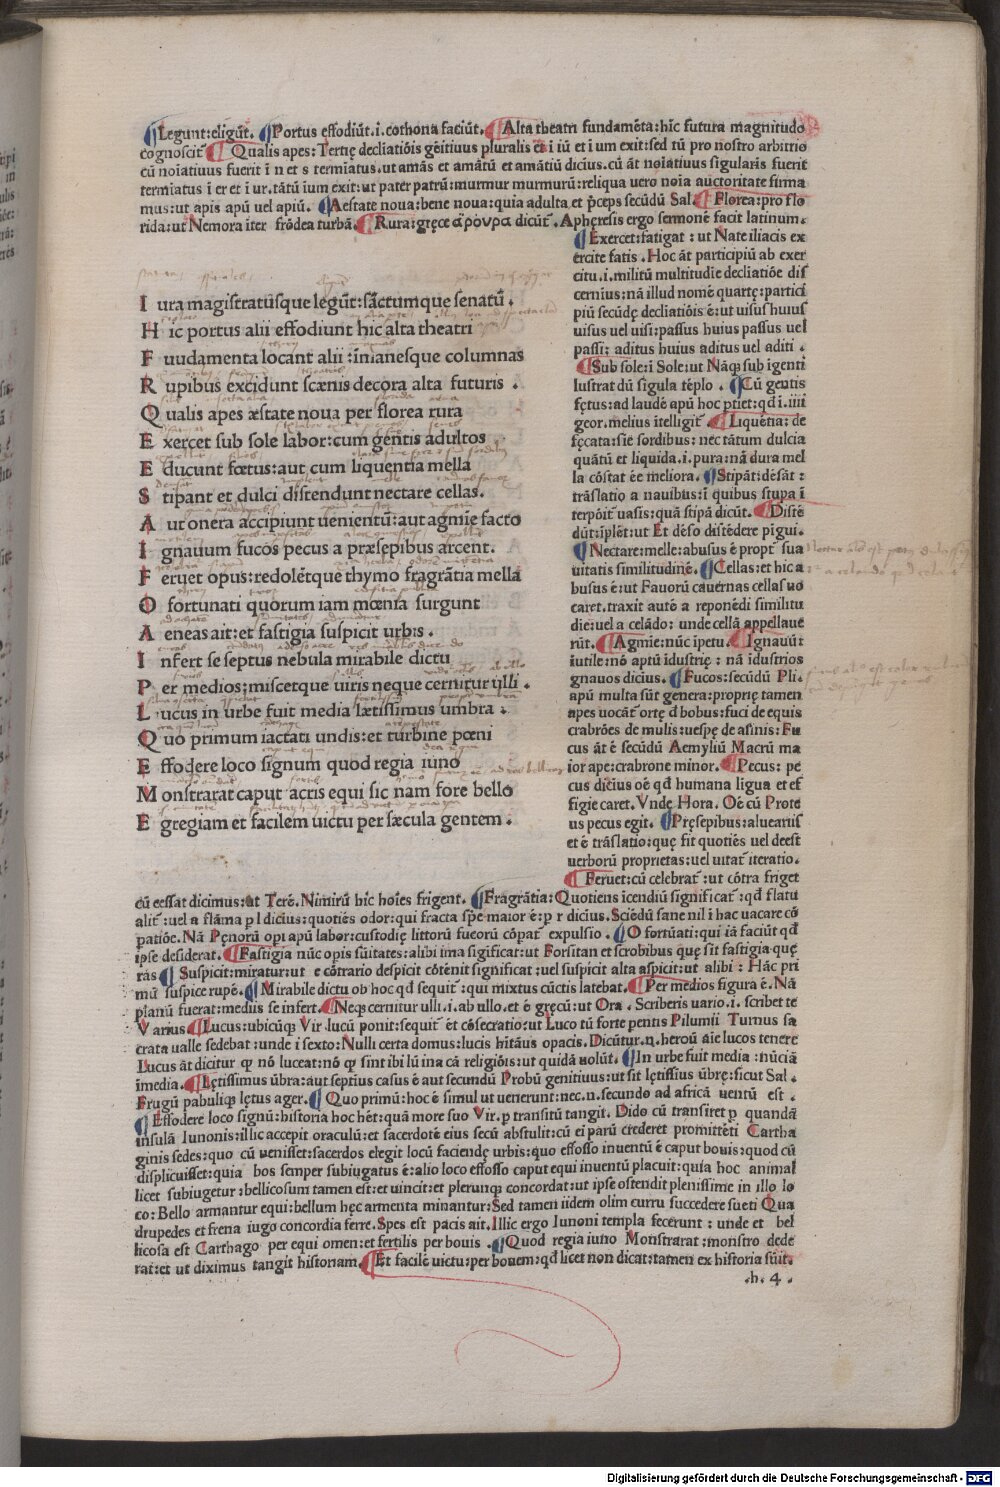 ¶Legunt:eligūt. ¶Portus effodiūt.i.cothona faciūt. ¶Alta theatri fundamēta:hic futura magnitudo
cognoscit̄ ¶Qualis apes:Tertię decliatiōis geitiuus pluralis et i iū et i um exit:sed tū pro nostro arbitrio
cū noiatiuus fuerit i n et s termiatus.ut amās et amātū et amātiū dicius.cū āt noiatiuus sigularis fuerit
termiatus i er et i ur.tātū ium exit:ut pater patrū:murmur murmurū:reliqua uero noia auctoritate firma
mus:ut apis apū uel apiū. ¶Aestate noua:bene noua:quia adulta et p̄ceps secūdū Sal. ¶Florea:pro flo
rida:ut Nemora iter frōdea turbā. ¶Rura:gręce ἄρουρα dicūt. Apheresis ergo sermonē facit latinum.
¶Exercet:fatigat : ut Nate iliacis ex
ercite fatis .Hoc āt participiū ab exer
citu.i.militū multitudie decliatiōe dis
cernius:nā illud nomē quartę:partici
piū secūdę decliatiōis ē:ut uisus huius
uisus uel uisi:passus huius passus uel
passi: aditus huius aditus uel aditi .
¶Sub sole:i Sole:ut Nāq̄ sub igenti
lustrat dū sigula tēplo . ¶Cū gentis
fętus:ad laudē apū hoc ptiet:qd̄ i.iiii
geor.melius itelligit̄ ¶Liquētia: de
fęcata:siē sordibus: nec tātum dulcia
quātū et liquida.i.pura:nā dura mel
la cōstat ēe meliora. ¶Stipāt:dēsāt :
trāslatio a nauibus:i quibus stupa i
terpōit̄ uasis:quā stipā dicūt. ¶Distē
dūt:iplēt:ut Et dēso distēdere pigui.
¶Nectare:melle:abusus ē propt̄ sua
uitatis similitudinē. ¶Cellas:et hic a
busus ē:ut Fauorū cauernas cellas uo
caret.traxit autē a reponēdi similitu
die:uel a celādo: unde cellā appellaue
rūt. ¶Agmie:nūc ipetu. ¶Ignauū:
iutile:nō aptū idustrię : nā idustrios
gnauos dicius. ¶Fucos:secūdū Pli.
apū multa sūt genera:proprię tamen
apes uocāt̄ ortę d̄ bobus:fuci de equis
crabrōes de mulis:uespę de asinis: Fu
cus āt ē secūdū Aemyliū Macrū ma
ior ape:crabrone minor. ¶Pecus: pe
cus dicius oē qd̄ humana ligua et ef
figie caret. Vnde Hora. Oē cū Prote
us pecus egit. ¶Pręsepibus:aluearus
et ē trāslatio:quę fit quotiēs uel deest
uerborū proprietas:uel uitat̄ iteratio.
¶Feruet:cū celebrat̄ :ut cōtra friget
I ura magistratusque legūt:sāctumque senatū .
H ic portus alii effodiunt hic alta theatri
F uudamenta locant alii :īmanesque columnas
R upibus excidunt scænis decora alta futuris .
Q ualis apes æstate noua per florea rura
E xercet sub sole labor:cum gentis adultos
E ducunt fœtus:aut cum liquentia mella
S tipant et dulci distendunt nectare cellas.
A ut onera accipiunt uenientū:aut agmie facto
I gnauum fucos pecus a præsepibus arcent.
F eruet opus:redolētque thymo fragrātia mella
O fortunati quorum iam mœnia surgunt
A eneas ait:et fastigia suspicit urbis .
I nfert se septus nebula mirabile dictu
P er medios:miscetque uiris neque cernitur ulli .
L ucus in urbe fuit media lætissimus umbra :
Q uo primum iactati undis:et turbine pœni
E ffodere loco signum quod regia iuno
M onstrarat caput acris equi sic nam fore bello
E gregiam et facilem uictu per sæcula gentem .
cū cessat dicimus:ut Terē. Nimirū hic hoies frigent. ¶Fragrātia:Quotiens icendiū significat̄ :qd̄ flatu
alit̄ :uel a flāma p l dicius:quotiēs odor:qui fracta spē maior ē:p r dicius. Sciēdū sane nil i hac uacare cō
patiōe. Nā Pęnorū opi apū labor:custodię littorū fucorū cōpat̄ expulsio . ¶O fortūati:qui iā faciūt qd̄
ipse desiderat. ¶Fastigia nūc opis sūitates:alibi ima sigificat:ut Forsitan et scrobibus quę sīt fastigia quę
rās ¶Suspicit:miratur:ut e cōtrario despicit cōtēnit significat :uel suspicit alta aspicit:ut alibi : Hāc pri
mū suspice rupē. ¶Mirabile dictu ob hoc qd̄ sequit̄ :qui mixtus cūctis latebat. ¶Per medios figura ē. Nā
planū fuerat:mediis se infert. ¶Neq̄ cernitur ulli.i.ab ullo.et ē gręcū:ut Ora . Scriberis uario.i. scribet te
Varius ¶Lucus:ubicūq̄ Vir lucū ponit:sequit̄ et cōsecratio:ut Luco tū forte pentis Pilumii Turnus sa
crata ualle sedebat :unde i sexto:Nulli certa domus:lucis hītāus opacis. Dicūtur.n.heroū aīe lucos tenere
Lucus āt dicitur q̄ nō luceat:nō q̄ sint ibi lūina cā religiōis:ut quidā uolūt. ¶In urbe fuit media :nūciā
īmedia. ¶Lętissimus ūbra:aut septius casus ē aut secundū Probū genitiuus:ut sit lętissius ūbrę:sicut Sal .
Frugū pabuliq̄ lętus ager. ¶Quo primū:hoc ē simul ut uenerunt:nec.n.secundo ad africā uentū est .
¶Effodere loco signū:historia hoc hēt:quā more suo Vir.p transitū tangit. Dido cū transiret p quandā
insulā Iunonis:illic accepit oraculū:et sacerdotē eius secū abstulit:cū ei parū crederet promittēti Cartha
ginis sedes:quo cū uenisset:sacerdos elegit locū faciendę urbis:quo effosso inuentū ē caput bouis:quod cū
displicuisset:quia bos semper subiugatus ē:alio loco effosso caput equi inuentū placuit:quia hoc animal
licet subiugetur :bellicosum tamen est:et uincit:et plerunq̄ concordat:ut ipse ostendit plenissime in illo lo
co:Bello armantur equi:bellum hęc armenta minantur:Sed tamen iidem olim curru succedere sueti Qua
drupedes et frena iugo concordia ferre. Spes est pacis ait. Illic ergo Iunoni templa fecerunt : unde et bel
licosa est Carthago per equi omen:et fertilis per bouis . ¶Quod regia iuno Monstrarat:monstro dede
rat:et ut diximus tangit historiam. ¶Et facilē uictu:per bouem:qd̄ licet non dicat:tamen ex historia sūit.
.h. 4 .
Digitalisierung gefördert durch die Deutsche Forschungsgemeinschaft - DFG